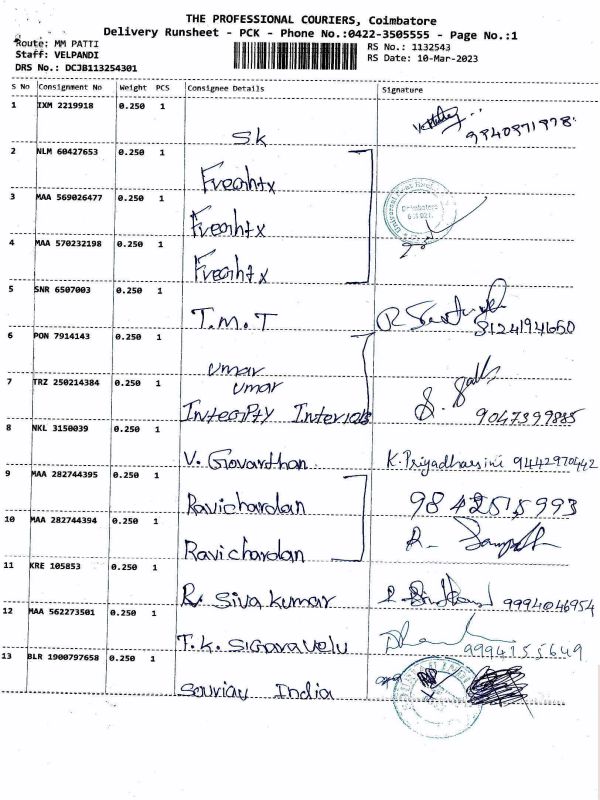 THE PROFESSIONAL COURIERS, Coimbatore
Delivery Runsheet - PCK - Phone No.:0422-3505555 - Page No.:1
Route: MM PATTI
RS No.: 1132543
Staff: VELPANDI
RS Date: 10-Mar-2023
DRS No.: DCJB113254301
S No Consignment No Weight PCS Consignee Details Signature
1 IXM 2219918 0.250 1
Sk 9840871878
2 NLM 60427653 0.250 1
Freahtx
3 MAA 569026477 0.250 1
Freahtx
Coimbatore
4 MAA 570232198 0.250 1
Freahtx
5 SNR 6507003 0.250 1
T.M.T 8124194660
6 PON 7914143 0.250 1
umar
7 TRZ 250214384 0.250 1
umar
Interiors 9047399885
8 NKL 3150039 0.250 1
V. Govardhan K. Priyadharsini 9442970442
9 MAA 282744395 0.250 1
Ravichardan 9842515993
10 MAA 282744394 0.250 1
Ravichardan
11 KRE 105853 0.250 1
R. Siva kumar 9994046954
12 MAA 562273501 0.250 1
T.K. Sigaravelu 9994155649
13 BLR 1900797658 0.250 1
Souriav India